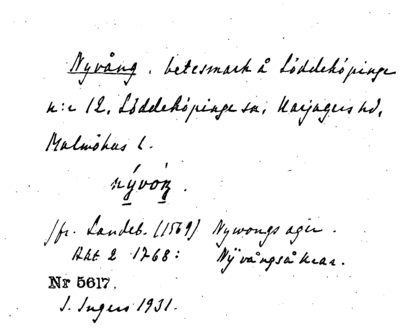 Nyvång. betesmark å Löddeköpinge
n:r 12, Löddeköpinge sn, Harjagers hd,
Malmöhus l.
nývóŋ.
Jfr. Landeb. (1569) Nywongs ager.
Akt 2 1768: Nÿvångsåkrar.
Nr 5617.
I. Ingers 1931.